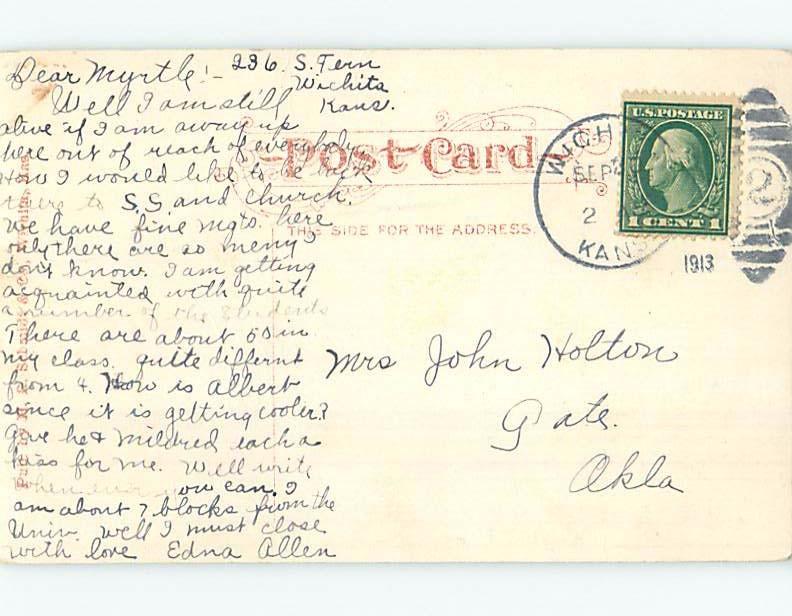 Dear Myrtle:- 236 S. Fern
Wichita
Kans.
Well I am still
alive if I am away up
here out of reach of everybody.
How I would like to be back
there to S.S and church.
We have fine mgts. here
only there are so meny I
don't know. I am getting
acquainted with quite
a number of the students
There are about 50 in
my class. quite differnt
from 4. How is albert
since it is getting cooler?
Give he & Mildred each a
kiss for me. Well write
when ever you can. I
am about 7 blocks from the
Univ. Well I must close
with love Edna Allen
Post Card
THIS SIDE FOR THE ADDRESS.
WICH
SEP
2
KANS
1913
U.S. POSTAGE
1 CENT 1
2
Mrs John Holton
Gate.
Okla